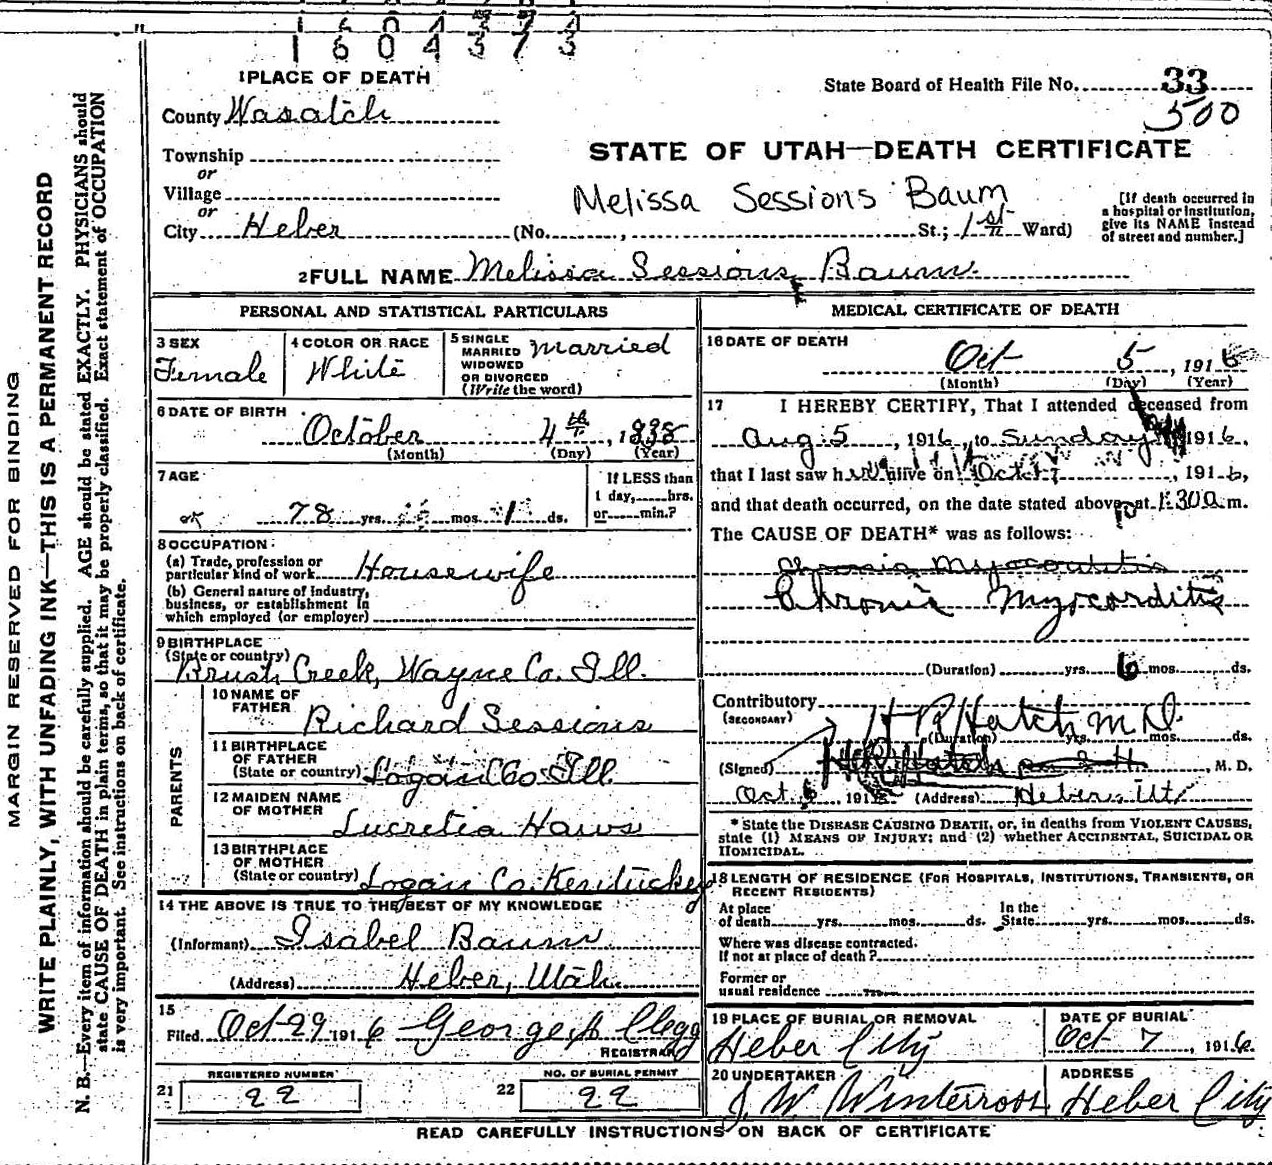 1604373
1 PLACE OF DEATH
State Board of Health File No. 33
500
County Wasatch
STATE OF UTAH—DEATH CERTIFICATE
Township
or
Village
Melissa Sessions Baum
[If death occurred in a hospital or institution, give its NAME instead of street and number.]
or
City Heber (No. , St.; 1st Ward)
2 FULL NAME Melissa Sessions Baum
PERSONAL AND STATISTICAL PARTICULARS
3 SEX
Female
4 COLOR OR RACE
White
5 SINGLE
MARRIED
WIDOWED
OR DIVORCED
(Write the word)
Married
6 DATE OF BIRTH
October 4th, 1838
(Month) (Day) (Year)
7 AGE
78 yrs. mos. 1 ds.
If LESS than
1 day, hrs.
or min.?
8 OCCUPATION
(a) Trade, profession or
particular kind of work Housewife
(b) General nature of industry,
business, or establishment in
which employed (or employer)
9 BIRTHPLACE
(State or country)
Brush Creek, Wayne Co. Ill.
PARENTS
10 NAME OF
FATHER
Richard Sessions
11 BIRTHPLACE
OF FATHER
(State or country) Logan Co. Ill
12 MAIDEN NAME
OF MOTHER
Lucretia Haws
13 BIRTHPLACE
OF MOTHER
(State or country) Logan Co. Kentuckey
14 THE ABOVE IS TRUE TO THE BEST OF MY KNOWLEDGE
(Informant) Isabel Baum
(Address) Heber, Utah.
15
Filed Oct 29 1916 George A Clegg
REGISTRAR
21 REGISTERED NUMBER
22
22 NO. OF BURIAL PERMIT
22
MEDICAL CERTIFICATE OF DEATH
16 DATE OF DEATH
Oct 5, 1916
(Month) (Day) (Year)
17 I HEREBY CERTIFY, That I attended deceased from
Aug. 5, 1916, to Sunday 1916,
that I last saw her alive on Oct 1, 1916,
and that death occurred, on the date stated above, at m.
The CAUSE OF DEATH* was as follows:
Chronic Myocorditis
(Duration) yrs. 6 mos. ds.
Contributory
(SECONDARY)
H R Hatch M.D.
(Duration) yrs. mos. ds.
(Signed) M. D.
Oct. 6 191 (Address) Heber, Ut
* State the DISEASE CAUSING DEATH, or, in deaths from VIOLENT CAUSES,
state (1) MEANS OF INJURY; and (2) whether ACCIDENTAL, SUICIDAL OR
HOMICIDAL.
18 LENGTH OF RESIDENCE (FOR HOSPITALS, INSTITUTIONS, TRANSIENTS, OR
RECENT RESIDENTS)
At place
of death yrs. mos. ds.
In the
State yrs. mos. ds.
Where was disease contracted.
If not at place of death?
Former or
usual residence
19 PLACE OF BURIAL OR REMOVAL
Heber City
DATE OF BURIAL
Oct 7, 1916.
20 UNDERTAKER
J. W. Winterrose
ADDRESS
Heber City
READ CAREFULLY INSTRUCTIONS ON BACK OF CERTIFICATE
MARGIN RESERVED FOR BINDING
WRITE PLAINLY, WITH UNFADING INK—THIS IS A PERMANENT RECORD
N. B.—Every item of information should be carefully supplied. AGE should be stated EXACTLY. PHYSICIANS should
state CAUSE OF DEATH in plain terms, so that it may be properly classified. Exact statement of OCCUPATION
is very important. See instructions on back of certificate.